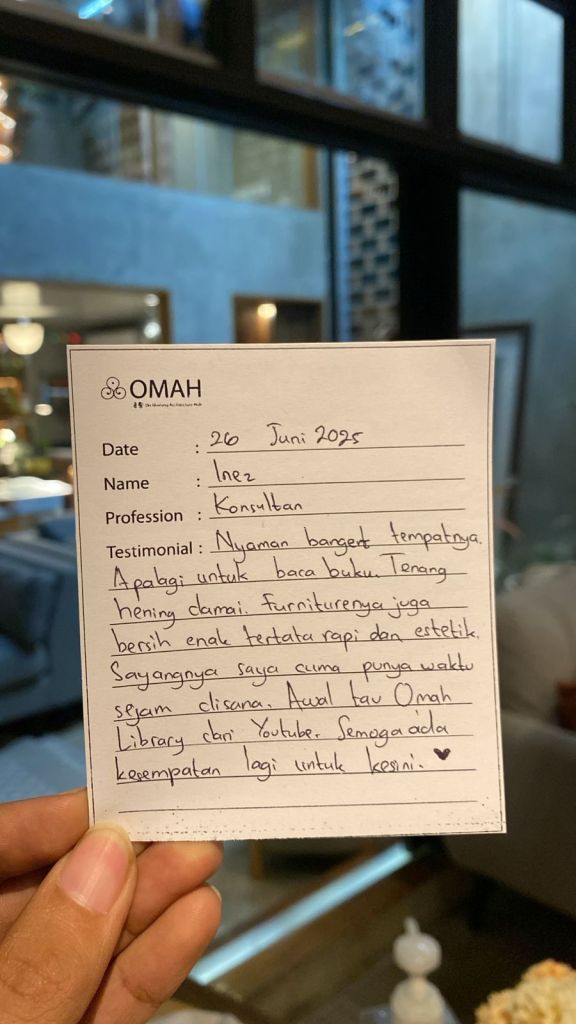 OMAH
Date : 26 Juni 2025
Name : Inez
Profession : Konsultan
Testimonial : Nyaman banget tempatnya.
Apalagi untuk baca buku. Tenang
hening damai. Furniturenya juga
bersih enak tertata rapi dan estetik.
Sayangnya saya cuma punya waktu
sejam disana. Awal tau Omah
Library dari Youtube. Semoga ada
kesempatan lagi untuk kesini. ♥